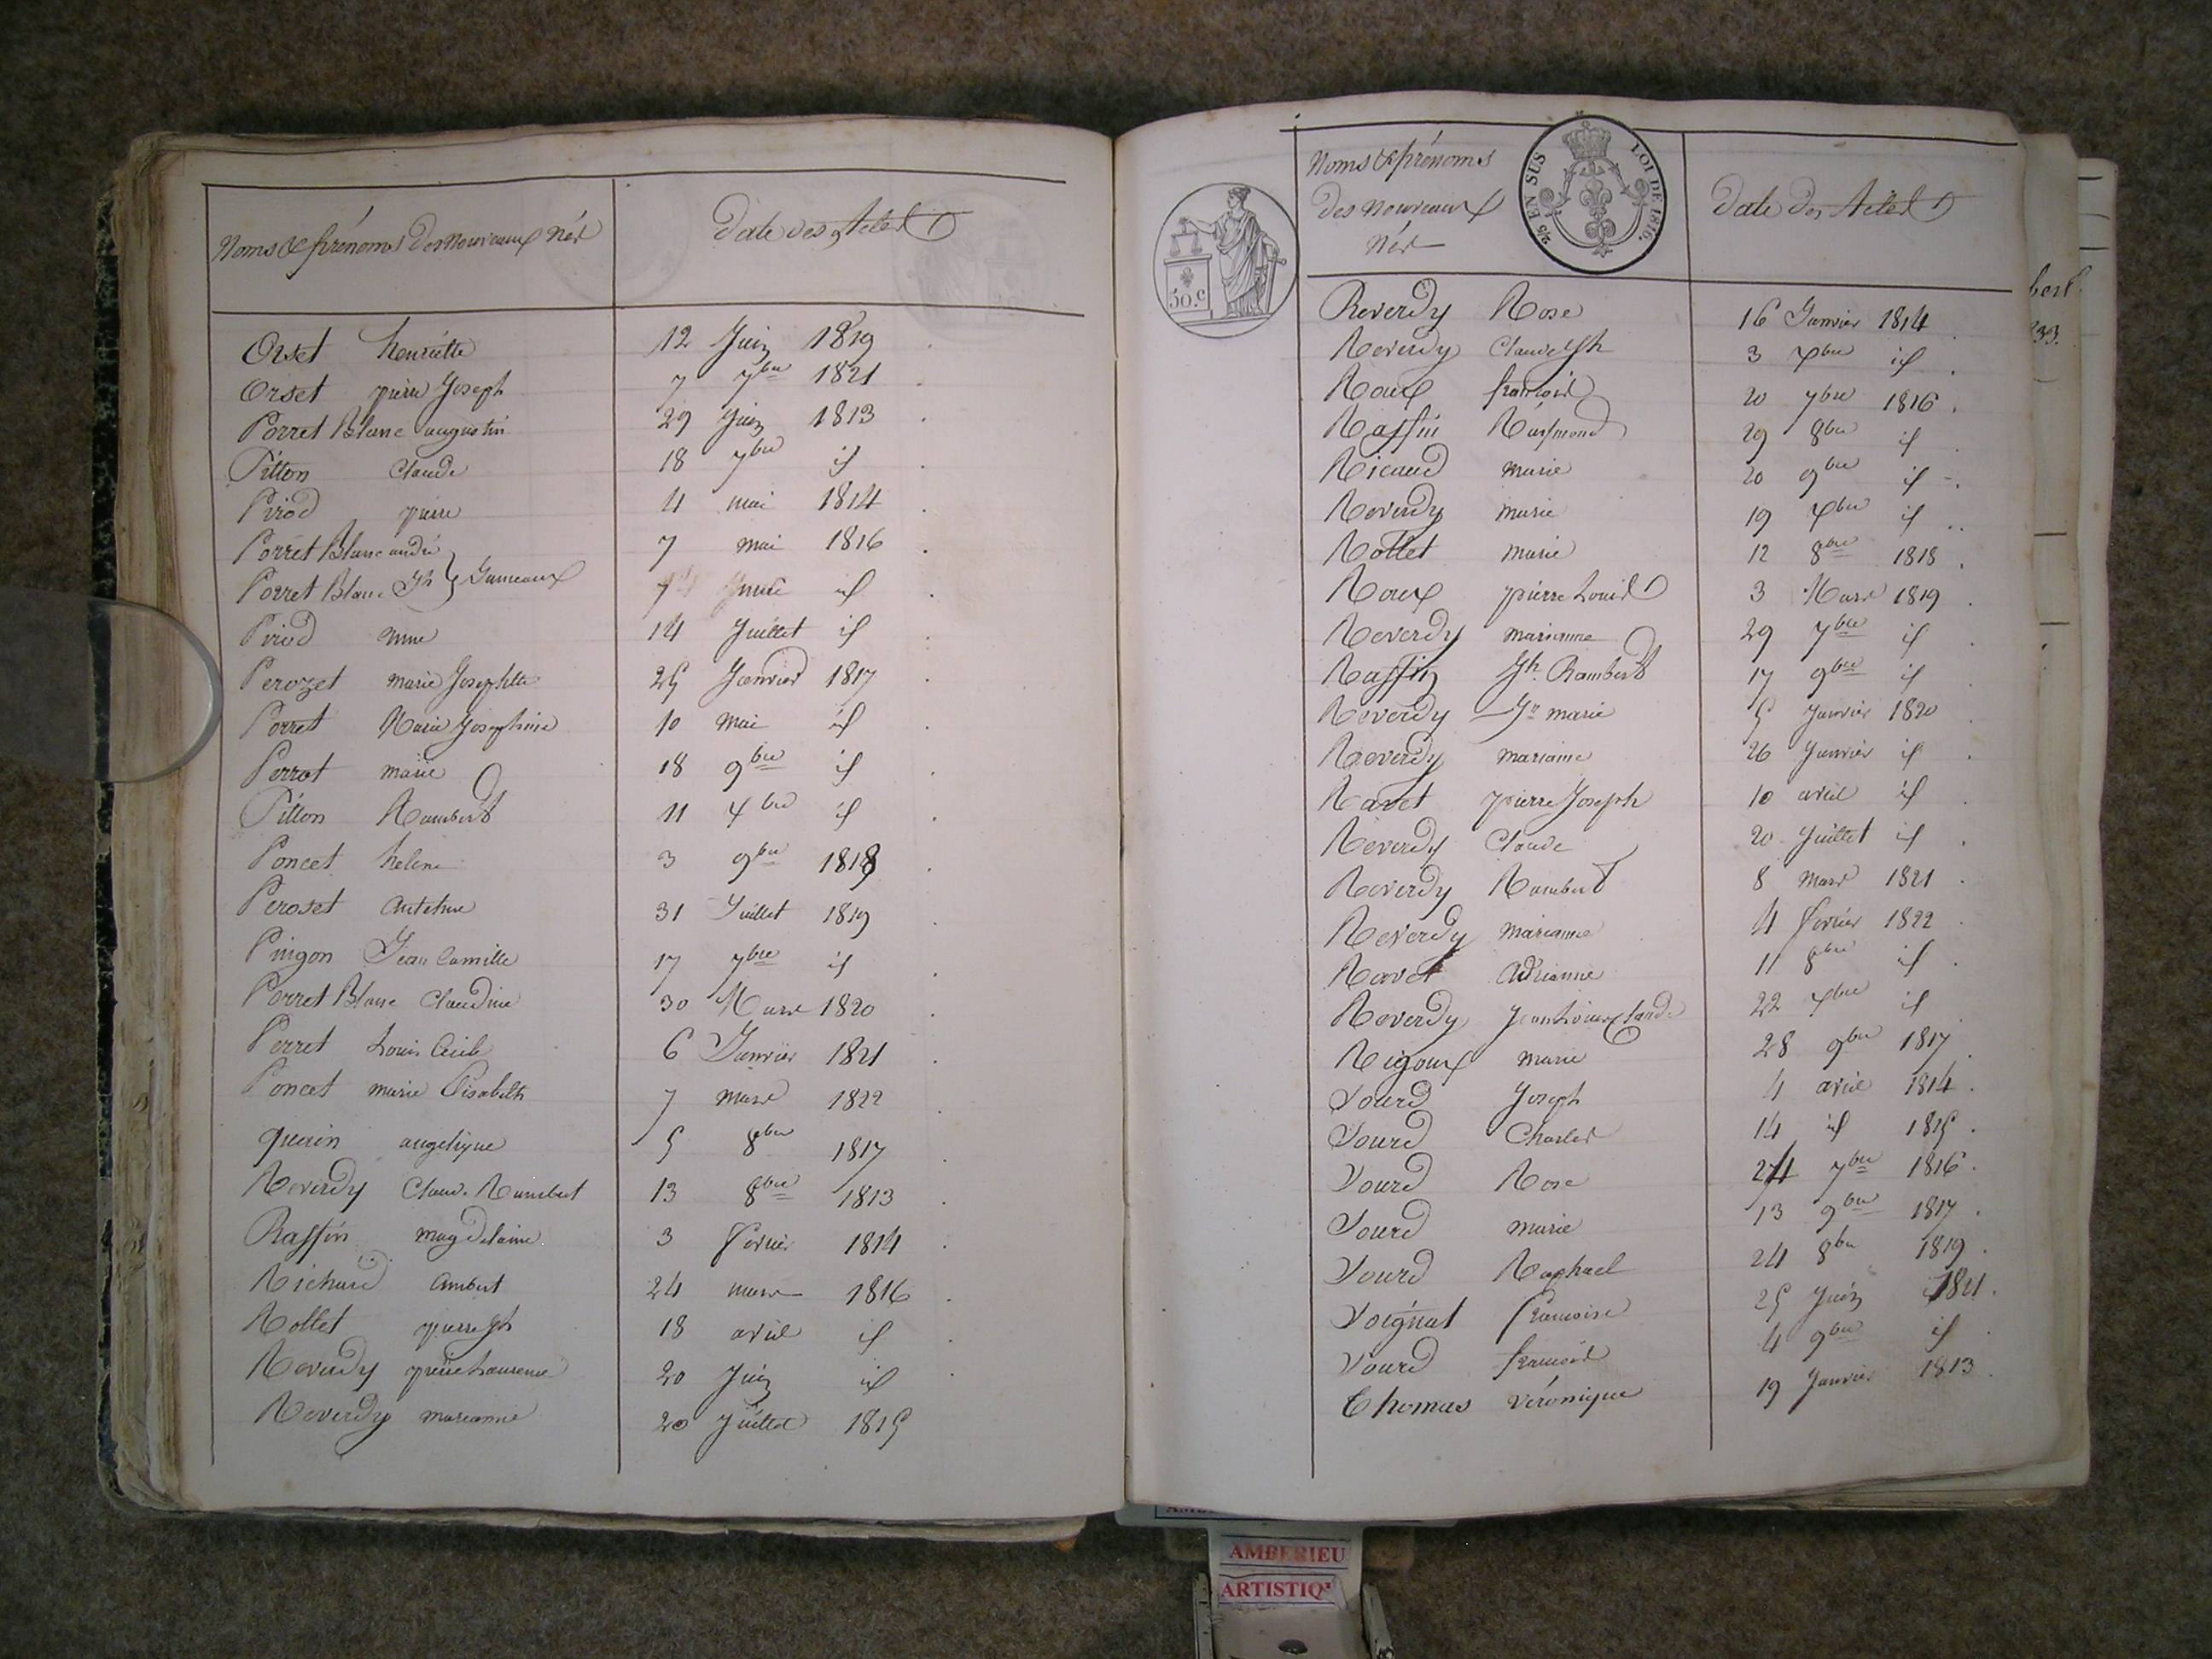 Noms & prénoms des Nouveaux Nés Date des Actes
Orset henriette 12 Juin 1819
Orset pierre Joseph 7 7bre 1821
Perret Blanc augustin 29 Juin 1813
Pitton Claude 18 7bre id
Pirod pierre 4 mai 1814
Perret Blanc andré 7 mai 1816
Perret Blanc Jh } Gumeaux 7 id
Pirod anne 14 Juillet id
Perozet marie Josephtte 25 Janvier 1817
Perret Marie Josephine 10 mai id
Perrot marie 18 9bre id
Pitton Rambert 11 Xbre id
Poncet helene 3 9bre 1818
Peroset Antelme 31 Juillet 1819
Pingon Jean Camille 17 7bre id
Perret Blanc Claudine 30 Mars 1820
Perret Louis Cecile 6 Janvier 1821
Poncet marie Elisabeth 7 mars 1822
querin angelique 5 8bre 1817
Reverdy Claud. Rambert 13 8bre 1813
Raffin magdelaine 3 fevrier 1814
Richard Ambert 24 mars 1816
Rollet pierre Jh 18 avril id
Reverdy pierre Laurence 20 Juin id
Reverdy marianne 20 Juillet 1815
Noms & prénoms
des Nouveaux
Nés
Date des Actes
2/5 EN SUS LOI DE 1816.
50.c
Reverdy Rose 16 Janvier 1814
Reverdy Claude Jh 3 Xbre id
Roux francois 20 7bre 1816
Raffin Raymond 29 8bre id
Ricaud marie 20 9bre id
Reverdy marie 19 Xbre id
Rollet marie 12 8bre 1818
Roux pierre Louis 3 Mars 1819
Reverdy marianne 29 7bre id
Raffin Jh. Rambert 17 9bre id
Reverdy Jn marie 5 Janvier 1820
Reverdy marianne 26 Janvier id
Ravet pierre Joseph 10 avril id
Reverdy Claude 20 Juillet id
Reverdy Rambert 8 mars 1821
Reverdy marianne 4 fevrier 1822
Ravet Adrianne 11 8bre id
Reverdy Jean Louis Claude 22 Xbre id
Rigoux marie 28 9bre 1817
Sourd Joseph 4 avril 1814
Sourd Charles 14 id 1815
Sourd Rose 24 7bre 1816
Sourd marie 13 9bre 1817
Sourd Raphael 24 8bre 1819
Soignat francoise 25 Juin 1821
Sourd francois 4 9bre id
Thomas véronique 19 Janvier 1813
AMBERIEU
ARTISTIQ